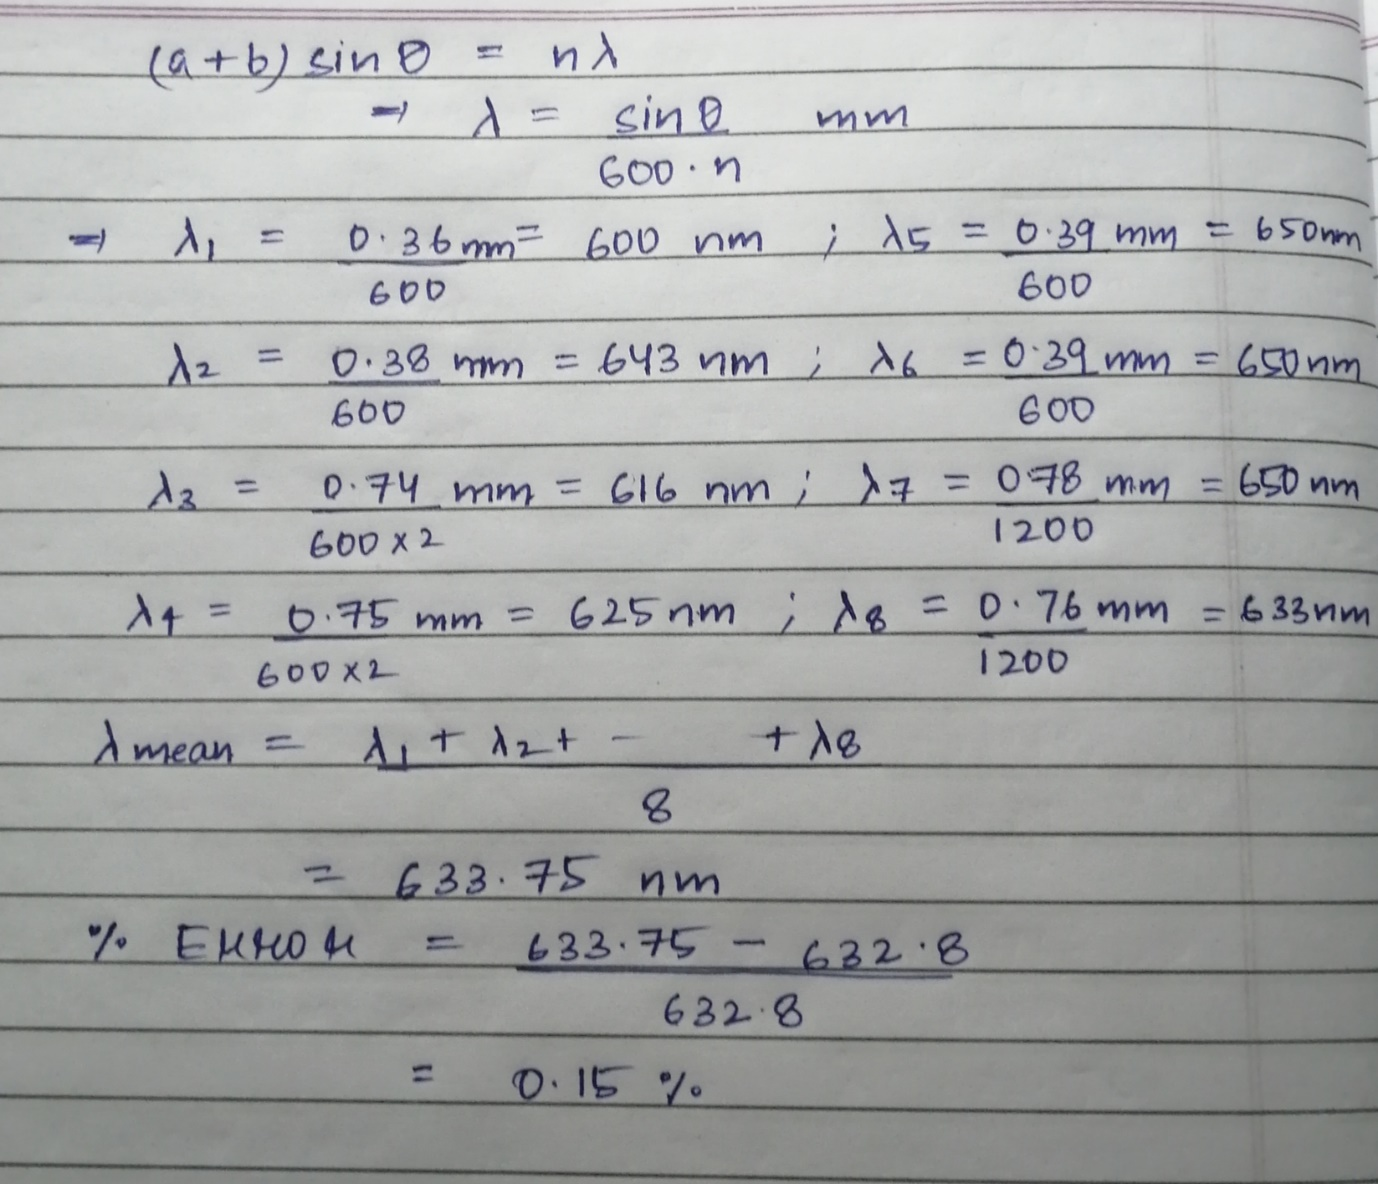 (a+b) sin θ = nλ
⇒ λ = sin θ / 600·n mm
⇒ λ1 = 0.36 mm / 600 = 600 nm ; λ5 = 0.39 mm / 600 = 650nm
λ2 = 0.38 mm / 600 = 643 nm ; λ6 = 0.39 mm / 600 = 650nm
λ3 = 0.74 mm / 600 x 2 = 616 nm ; λ7 = 078 mm / 1200 = 650 nm
λ4 = 0.75 mm / 600 x 2 = 625 nm ; λ8 = 0.76 mm / 1200 = 633nm
λ mean = λ1 + λ2 + - + λ8 / 8
= 633.75 nm
% ERROR = 633.75 - 632.8 / 632.8
= 0.15 %